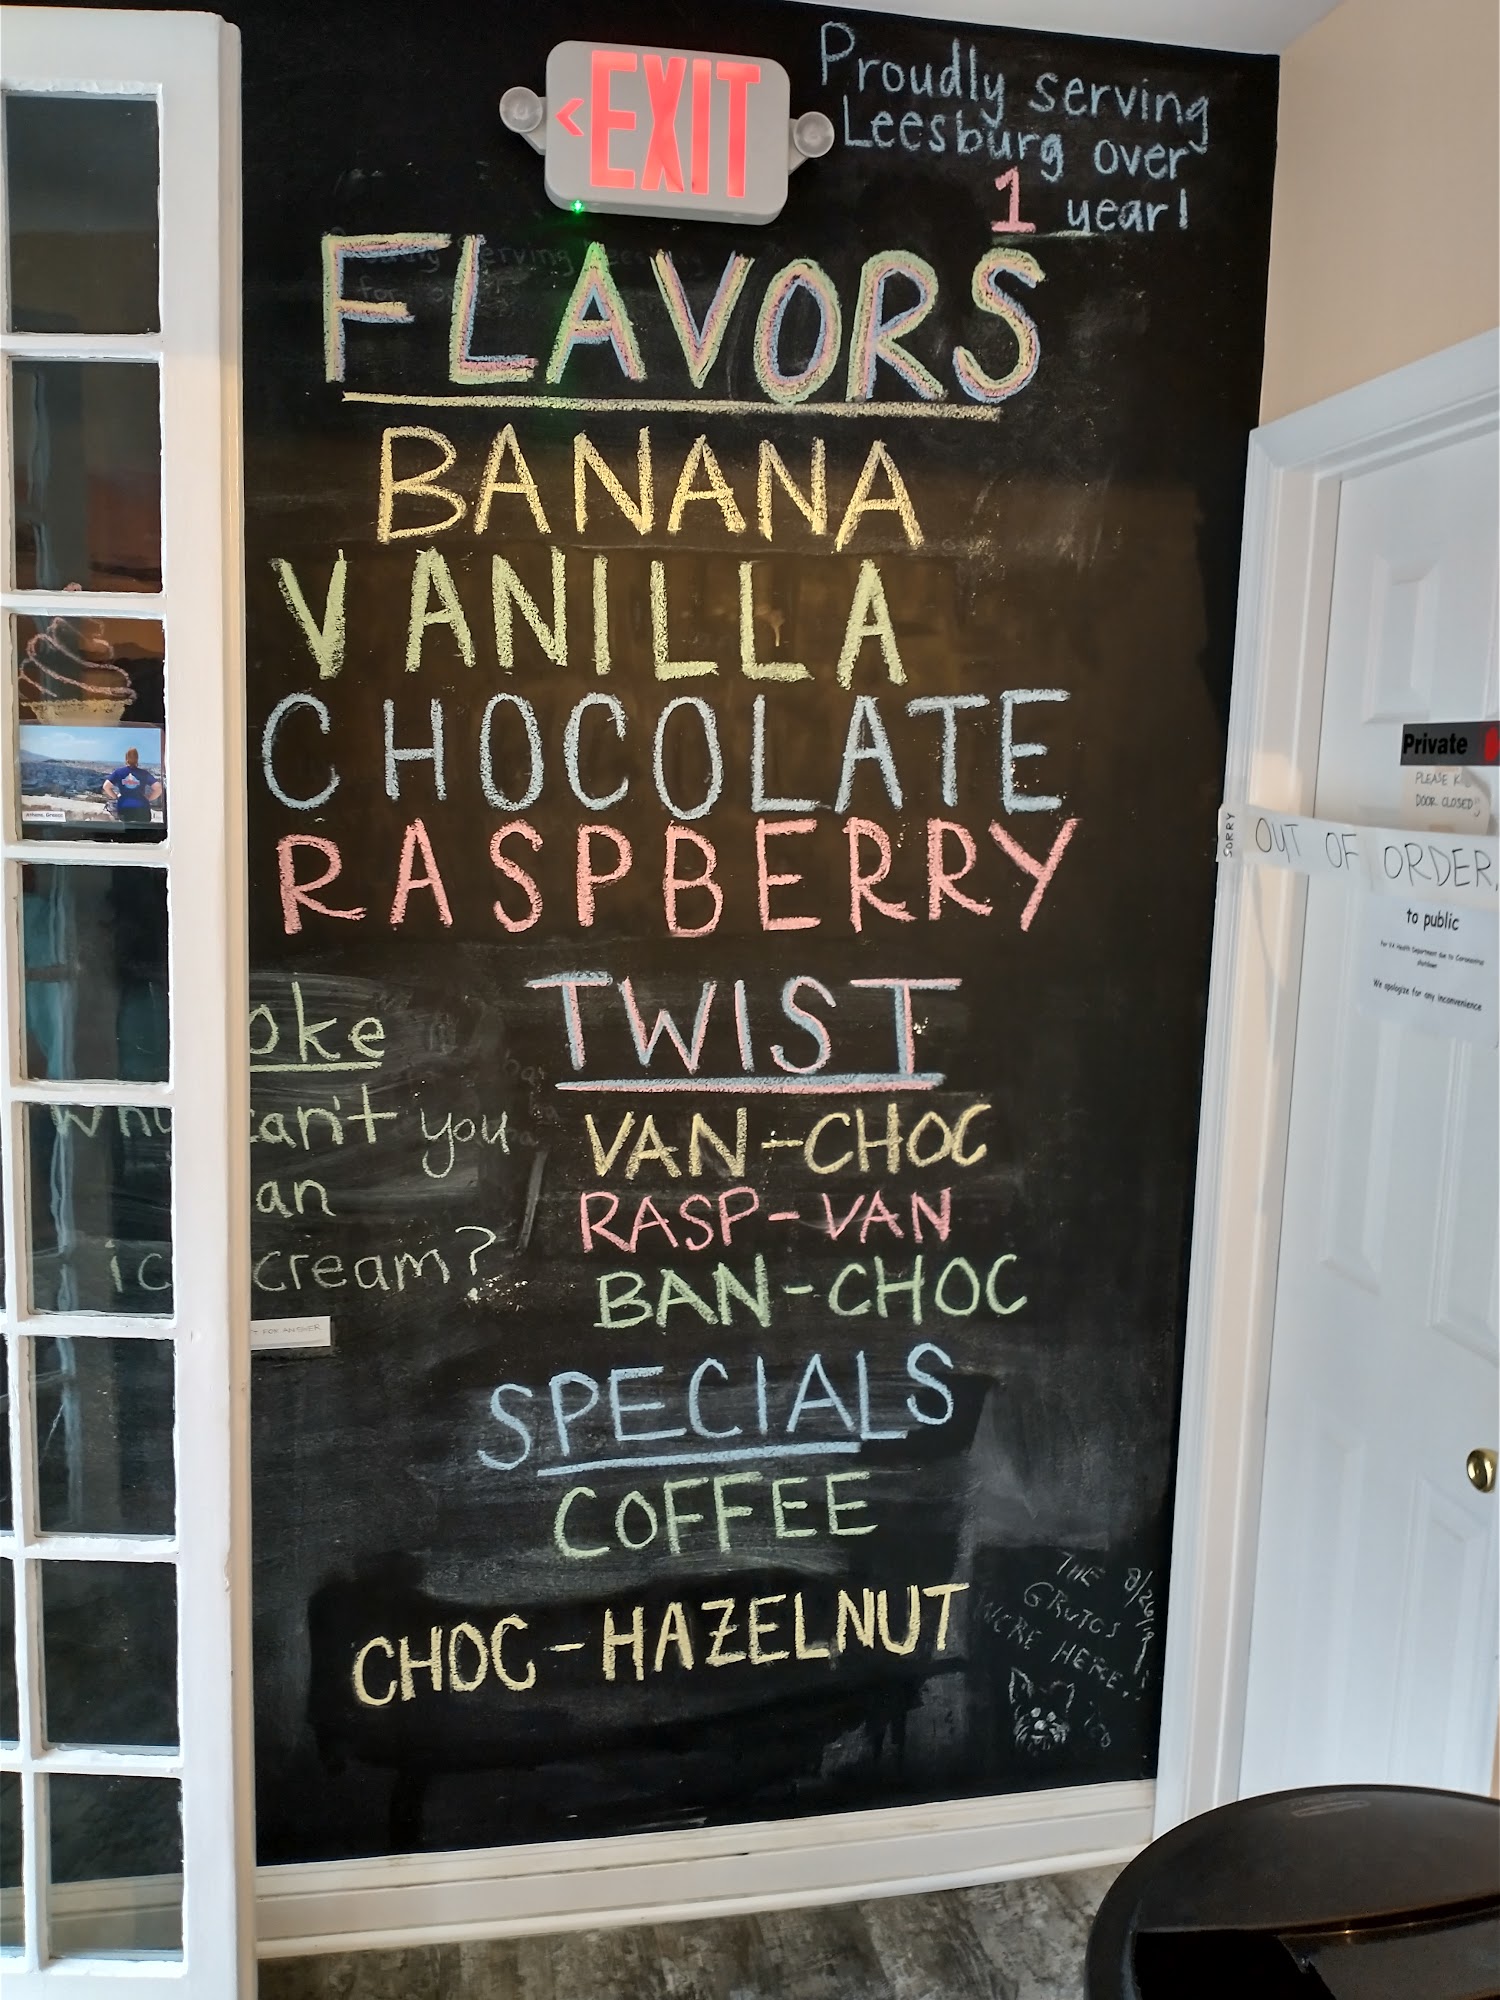 Proudly serving
Leesburg over
1 year!
<EXIT
FLAVORS
BANANA
VANILLA
CHOCOLATE
RASPBERRY
TWIST
VAN-CHOC
RASP-VAN
BAN-CHOC
SPECIALS
COFFEE
CHOC-HAZELNUT
oke
why can't you
an
ice cream?
FOR ANSWER
THE
GRUTOS
WERE HERE!
too
Private
PLEASE K
DOOR CLOSED
SORRY
OUT OF ORDER
to public
For VA Health Department due to Coronavirus
shutdown
We apologize for any inconvenience
Athens, Greece